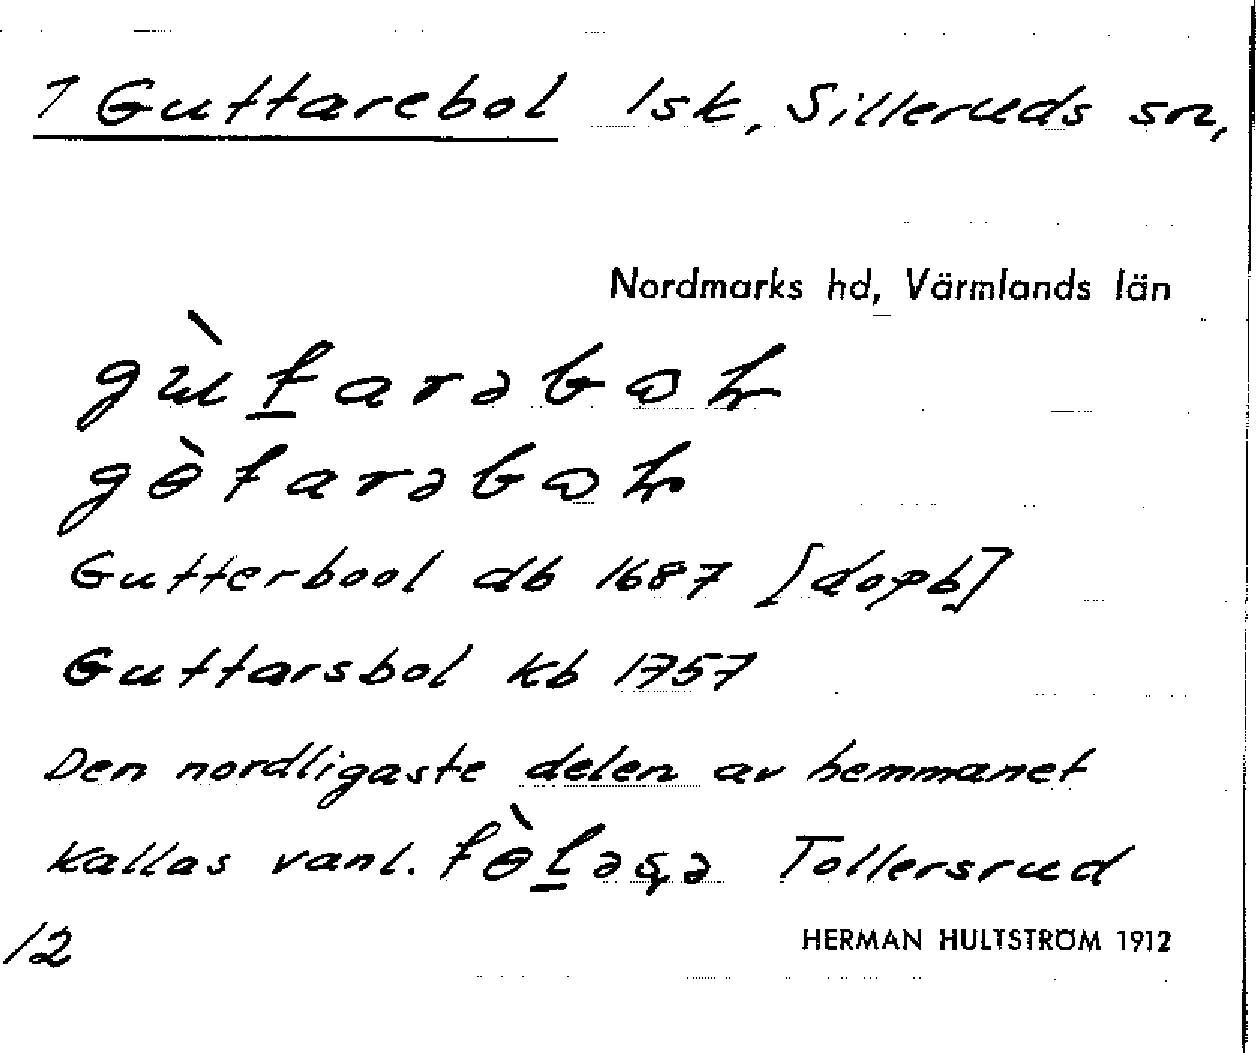 1 Guttarebol lsk, Silleruds sn,
Nordmarks hd, Värmlands län
Gutterbool db 1687 [dopb]
Guttarsbol kb 1757
Den nordligaste delen av hemmanet
kallas vanl. Tollersrud
/2
HERMAN HULTSTRÖM 1912